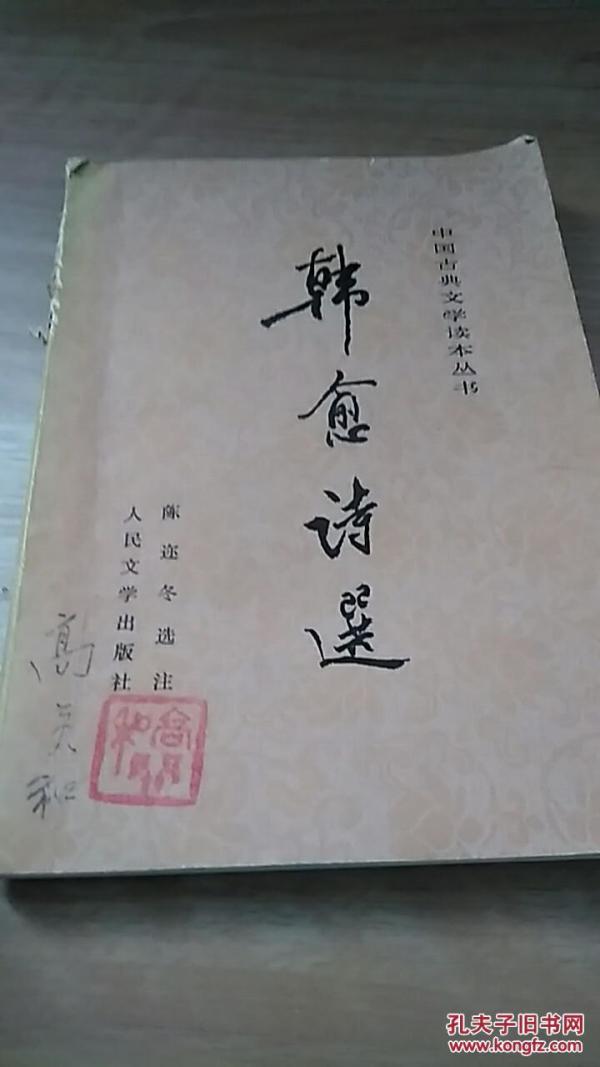 中国古典文学读本丛书
韩愈诗選
陈迩冬选注
人民文学出版社
高
和
孔夫子旧书网
www.kongfz.com